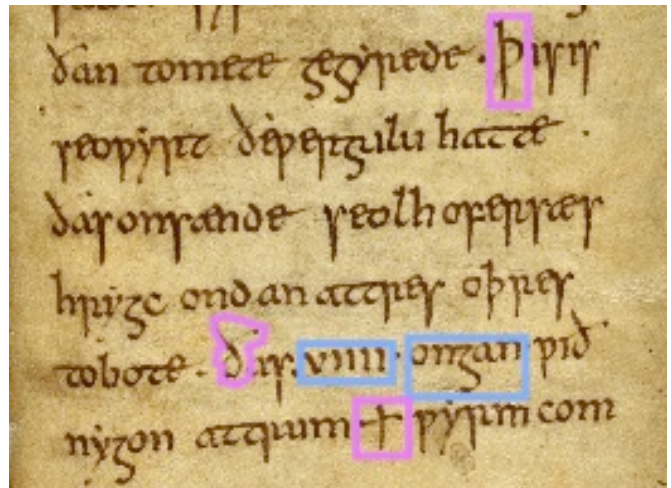 ðan tomete gegyrede · Þisis
seoƿyrt ðeƿergulu hatte ·
ðasonsænde seolh ofersæs
hrygc ondan attres oþres
tobote · ðas · viiii · ongan ƿið
nygon attrum · + ƿyrm com